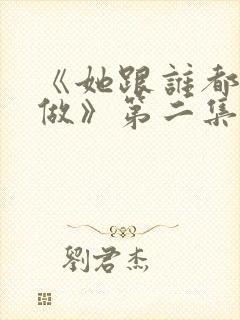 《她跟誰都
做》第二集
劉君杰